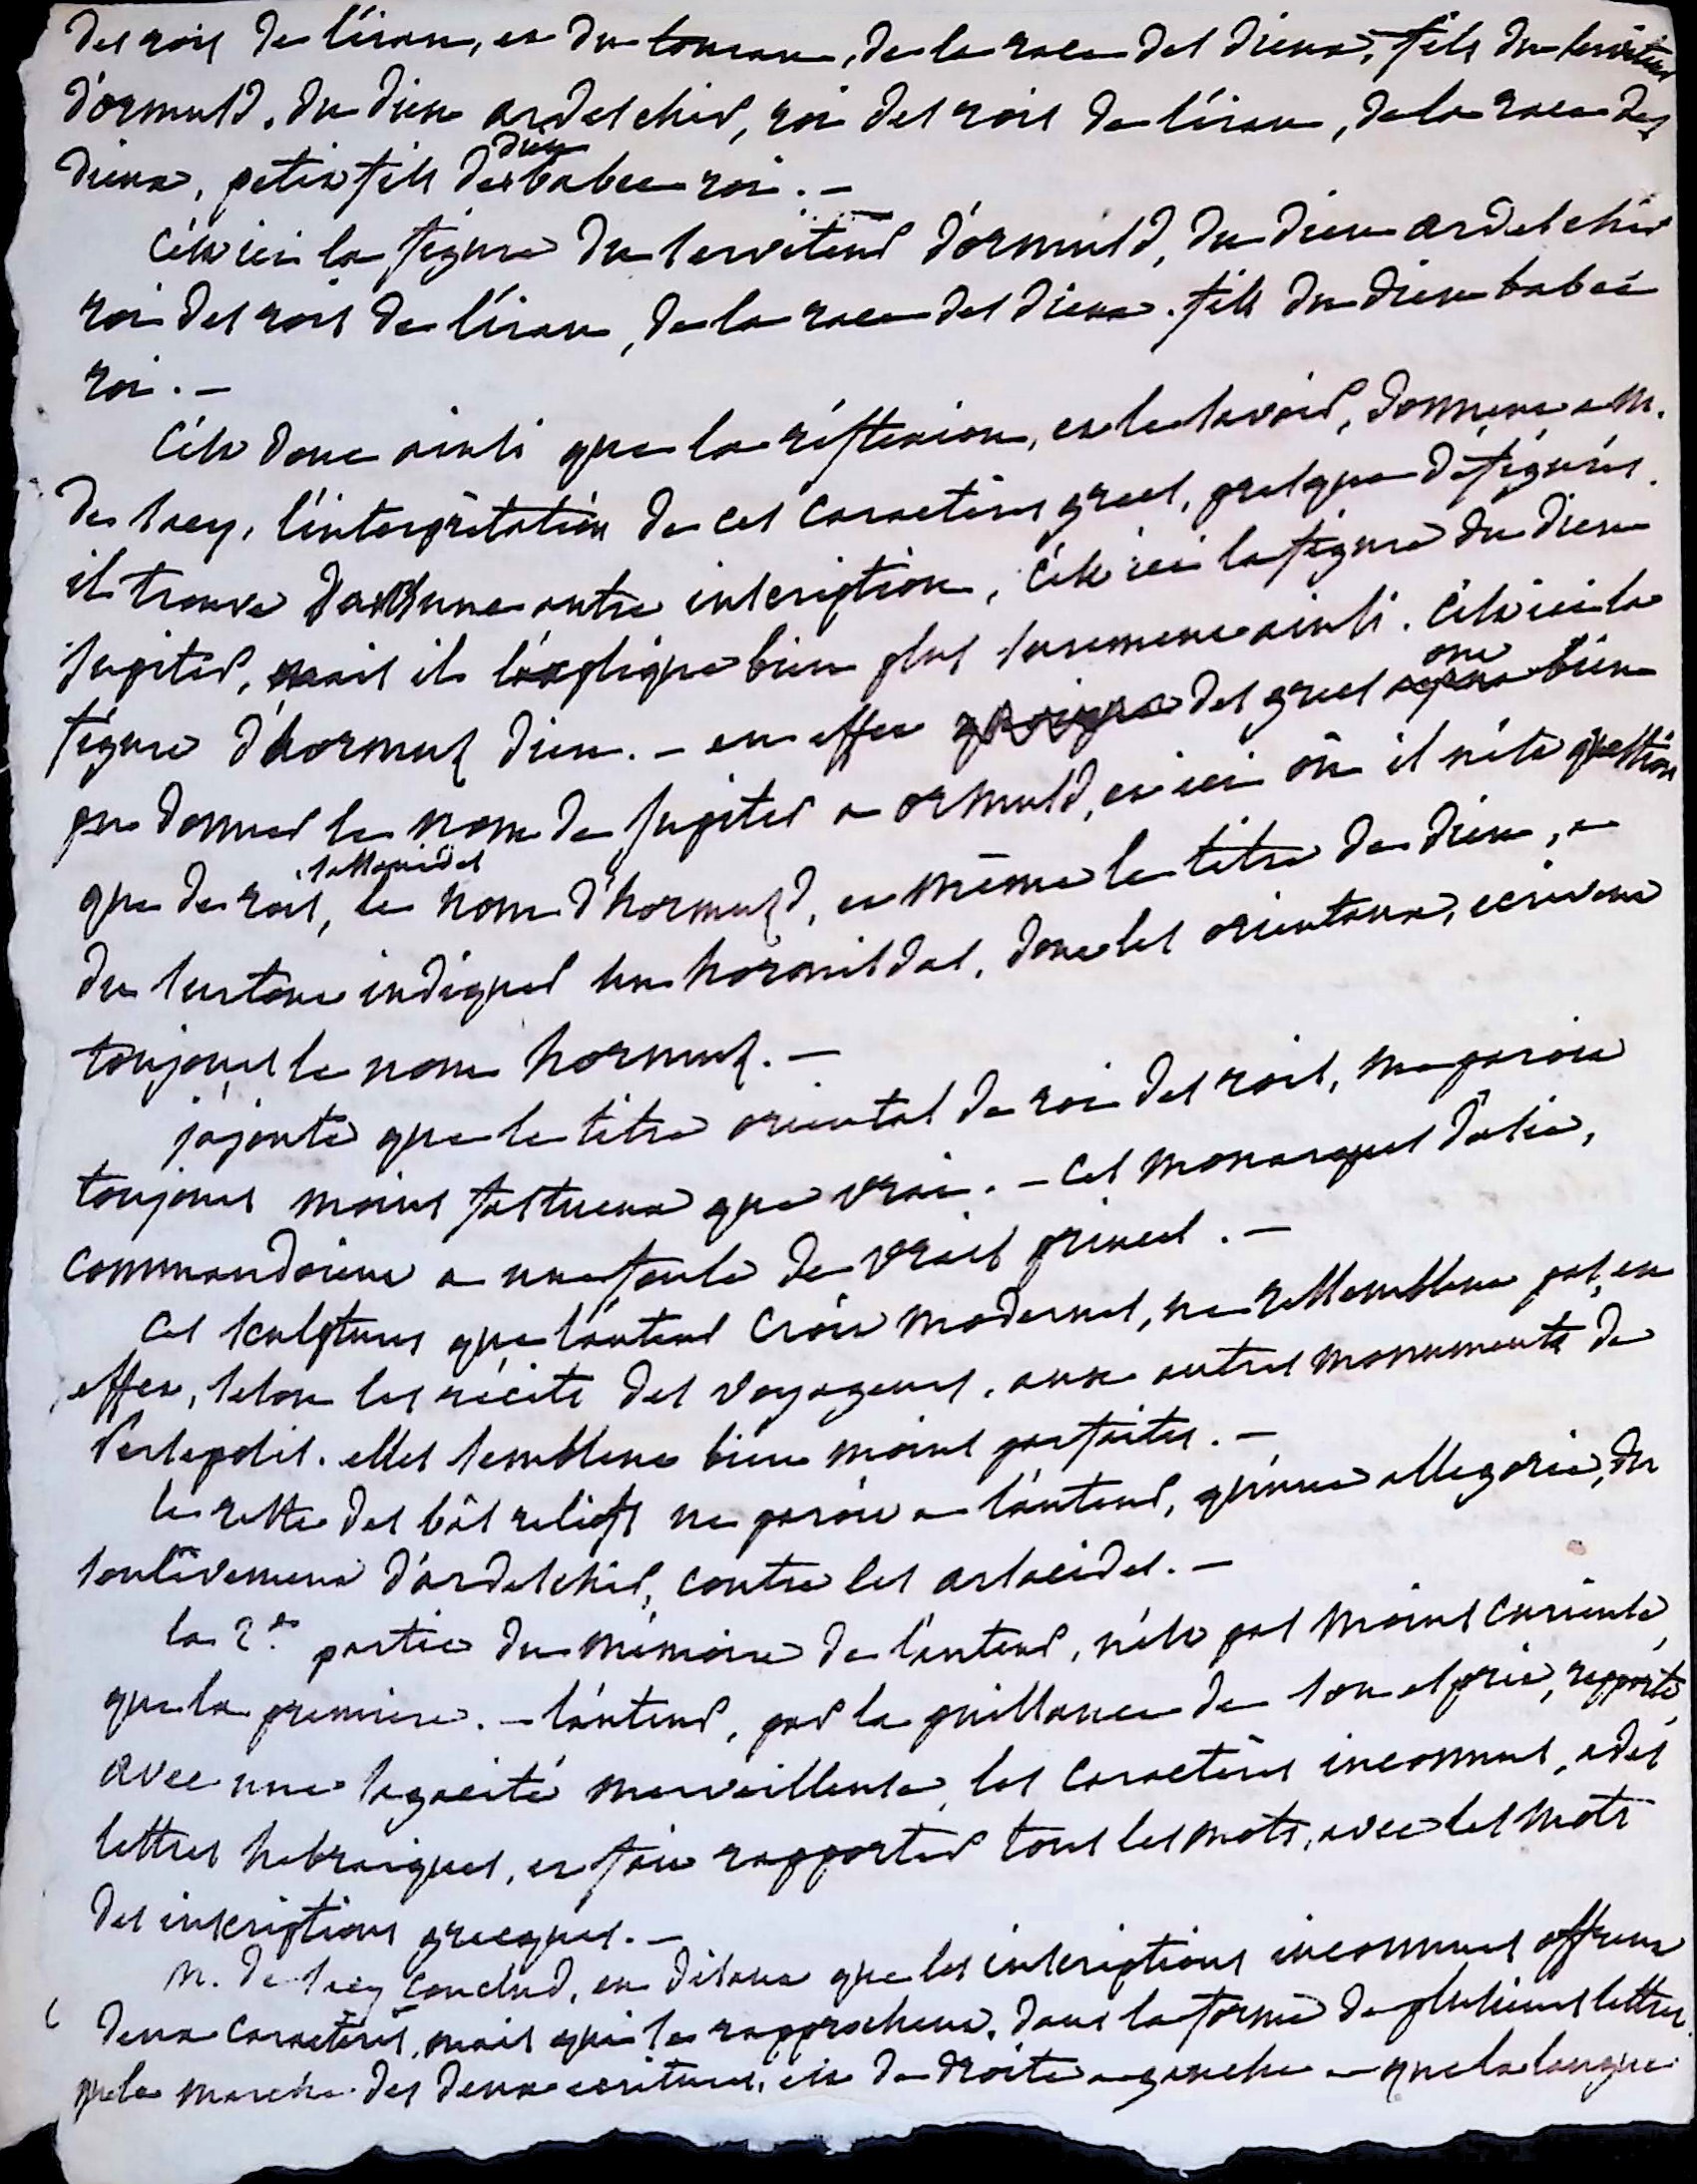 des rois de l'iran, et du touran, de la race des dieux, fils du serviteur
d'ormusd, du dieu ardeschir, roi des rois de l'iran, de la race des
dieux, petit fils du dieu babec roi. –
C'est ici la figure du serviteur d'ormusd, du dieu ardeschir
roi des rois de l'iran, de la race des dieux. fils du dieu babec
roi. –
C'est donc ainsi que la réflexion, et le savoir, donnent a M.
de Sacy, l'interprétation de ces caractères grecs, presque défigurés.
il trouve dans une autre inscription, c'est ici la figure du dieu
Jupiter, mais il l'explique bien plus surement ainsi. C'est ici la
figure d'hormuz dieu. – en effet des grecs ont bien
pu donner le nom de Jupiter a ormusd, et ici où il n'est question
que de rois, sassanides le nom d'hormuzd, et même le titre de dieu, a
du surtout indiquer un hormisdas, dont les orientaux, ecrivent
toujours le nom hormuz. –
j'ajoute que le titre oriental de roi des rois, me paroit
toujours moins fastueux que vrai. – Ces monarques d'asie,
commandoient a une foule de vrais princes. –
Ces sculptures que l'auteur croit modernes, ne ressemblent pas, en
effet, selon les récits des voyageurs, aux autres monuments de
Persepolis. elles semblent bien moins parfaites. –
le reste des bâs reliefs ne paroit a l'auteur, qu'une allegorie, du
soulèvement d'ardeschir, contre les arsacides. –
la 2de partie du mémoire de l'auteur, n'est pas moins curieuse,
que la premiere. – l'auteur, par la puissance de son esprit, rapporte,
avec une sagacité merveilleuse, les caractères inconnus, a des
lettres hebraiques, et fait rapporter tous les mots, avec les mots
des inscriptions grecques. –
M. de Sacy conclud, en disant que les inscriptions inconnues offrent
deux caractères, mais qui se rapprochent, dans la forme de plusieurs lettres.
que la marche des deux ecritures, est de droite a gauche – que la langue